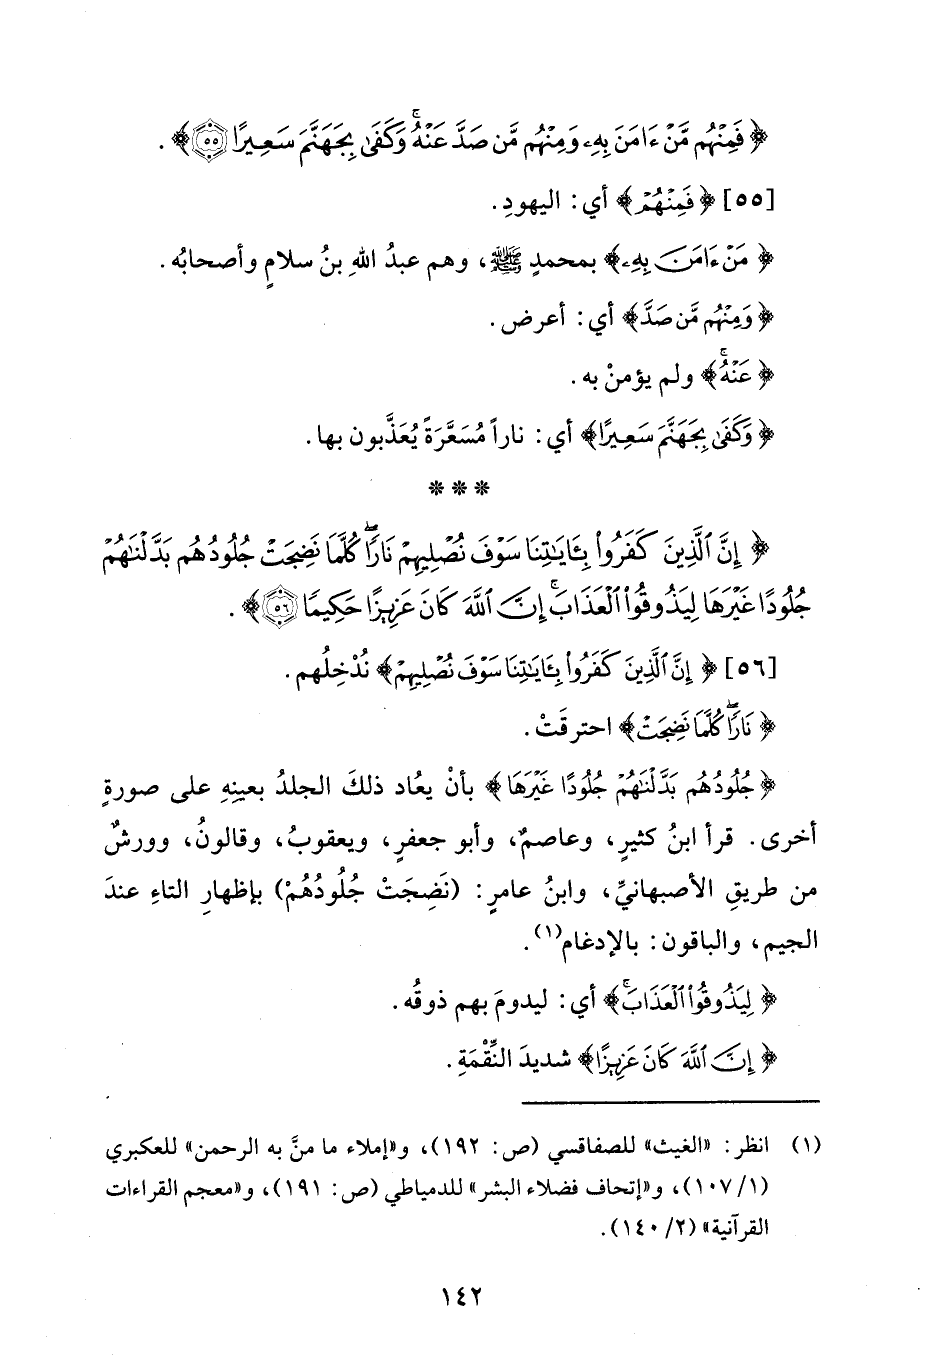 ﴿ فَمِنْهُم مَّنْ ءَامَنَ بِهِۦ وَمِنْهُم مَّن صَدَّ عَنْهُ ۚ وَكَفَىٰ بِجَهَنَّمَ سَعِيرًا ٥٥ ﴾ .
[٥٥] ﴿ فَمِنْهُمْ ﴾ أي: اليهودِ.
﴿ مَنْ ءَامَنَ بِهِۦ ﴾ بمحمدٍ ﷺ، وهم عبدُ اللهِ بنُ سلامٍ وأصحابُه.
﴿ وَمِنْهُم مَّن صَدَّ ﴾ أي: أعرض.
﴿ عَنْهُ ۚ ﴾ ولم يؤمنْ به.
﴿ وَكَفَىٰ بِجَهَنَّمَ سَعِيرًا ﴾ أي: ناراً مُسَعَّرَةً يُعَذَّبون بها.
* * *
﴿ إِنَّ ٱلَّذِينَ كَفَرُوا۟ بِـَٔايَـٰتِنَا سَوْفَ نُصْلِيهِمْ نَارًا ۖ كُلَّمَا نَضِجَتْ جُلُودُهُم بَدَّلْنَـٰهُمْ
جُلُودًا غَيْرَهَا لِيَذُوقُوا۟ ٱلْعَذَابَ ۚ إِنَّ ٱللَّهَ كَانَ عَزِيزًا حَكِيمًا ٥٦ ﴾ .
[٥٦] ﴿ إِنَّ ٱلَّذِينَ كَفَرُوا۟ بِـَٔايَـٰتِنَا سَوْفَ نُصْلِيهِمْ ﴾ نُدْخِلُهم.
﴿ نَارًا ۖ كُلَّمَا نَضِجَتْ ﴾ احترقَتْ.
﴿ جُلُودُهُم بَدَّلْنَـٰهُمْ جُلُودًا غَيْرَهَا ﴾ بأنْ يعُاد ذلكَ الجلدُ بعينِهِ على صورةٍ
أخرى. قرأ ابنُ كثيرٍ، وعاصمٌ، وأبو جعفرٍ، ويعقوبُ، وقالونُ، وورشٌ
من طريقِ الأصبهانيِّ، وابنُ عامرٍ: (نَضِجَتْ جُلُودُهُمْ) بإظهارِ التاءِ عندَ
الجيم، والباقون: بالإدغام(١).
﴿ لِيَذُوقُوا۟ ٱلْعَذَابَ ۚ ﴾ أي: ليدومَ بهم ذوقُه.
﴿ إِنَّ ٱللَّهَ كَانَ عَزِيزًا ﴾ شديدَ النِّقْمَةِ.
(١) انظر: «الغيث» للصفاقسي (ص: ١٩٢)، و«إملاء ما منَّ به الرحمن» للعكبري
(١/ ١٠٧)، و«إتحاف فضلاء البشر» للدمياطي (ص: ١٩١)، و«معجم القراءات
القرآنية» (٢/ ١٤٠).
١٤٢